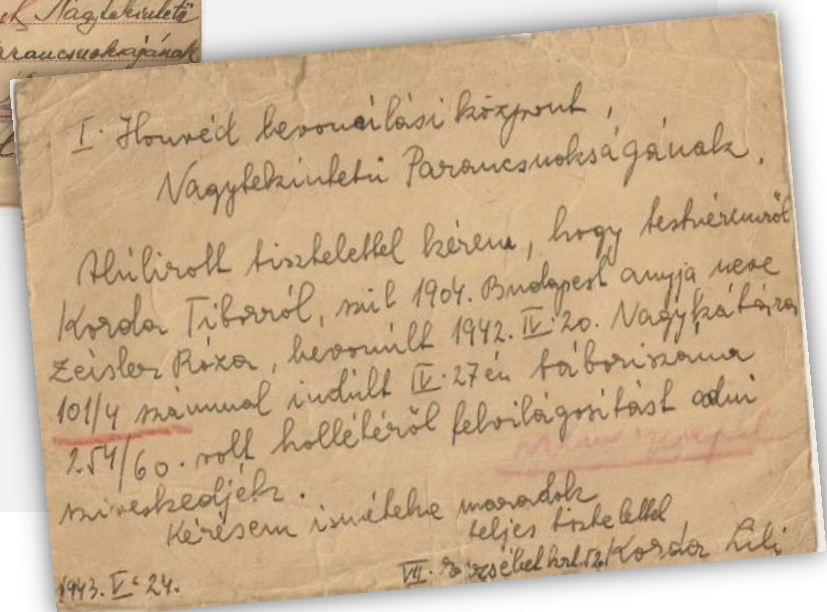 ek Nagytekintetü
Parancsnokságának
I. Honvéd bevonúlási központ,
Nagytekintetü Parancsnokságának.
Alúlirott tisztelettel kérem, hogy testvéremről
Korda Tiborról, szül 1904. Budapest anyja neve
Zeisler Róza, bevonúlt 1942. IV. 20. Nagykátára
101/4 számmal indúlt IV. 27én tábori száma
254/60. volt hollétéről felvilágosítást adni
sziveskedjék.
nem szerepel
Kérésem ismételve maradok
teljes tisztelettel
1943. V. 24.
VII. Erzsébet krt. 52. Korda Lili